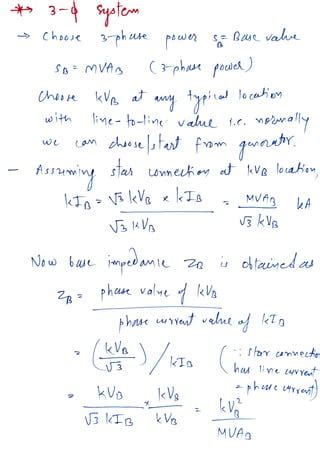 * 3-φ System
→ Choose 3-phase power S_B = Base value
S_B = MVA_B (3-phase power)
Choose kV_B at any typical location
with line-to-line value i.e. normally
we can choose/start from generator.
- Assuming star connection at kV_B location,
kI_B = √3 kV_B × kI_B / √3 kV_B = MVA_B / √3 kV_B kA
Now base impedance Z_B is obtained as
Z_B = phase value of kV_B / phase current value of kI_B
= (kV_B / √3) / kI_B (∵ star connecte
has line current
= phase current)
= kV_B / √3 kI_B × kV_B / kV_B = kV_B² / MVA_B